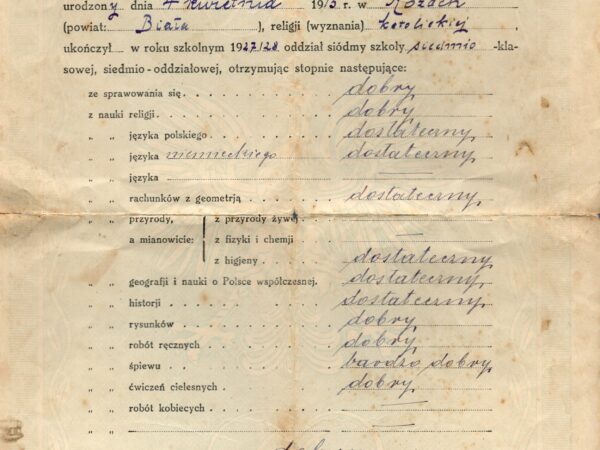 urodzony dnia 4 kwietnia 1913 r. w Kozach
(powiat: Biała), religji (wyznania) katolickiej,
ukończył w roku szkolnym 1927/28 oddział siódmy szkoły siedmio-kla-
sowej, siedmio-oddziałowej, otrzymując stopnie następujące:
ze sprawowania się dobry
z nauki religji dobry
" " języka polskiego dostateczny
" " języka niemieckiego dostateczny
" " języka —
" " rachunków z geometrją dostateczny
" " przyrody, z przyrody żywej —
a mianowicie: z fizyki i chemji
z higjeny dostateczny
" " geografji i nauki o Polsce współczesnej. dostateczny
" " historji dostateczny
" " rysunków dobry
" " robót ręcznych dobry
" " śpiewu bardzo dobry
" " ćwiczeń cielesnych dobry
" " robót kobiecych —
" " —